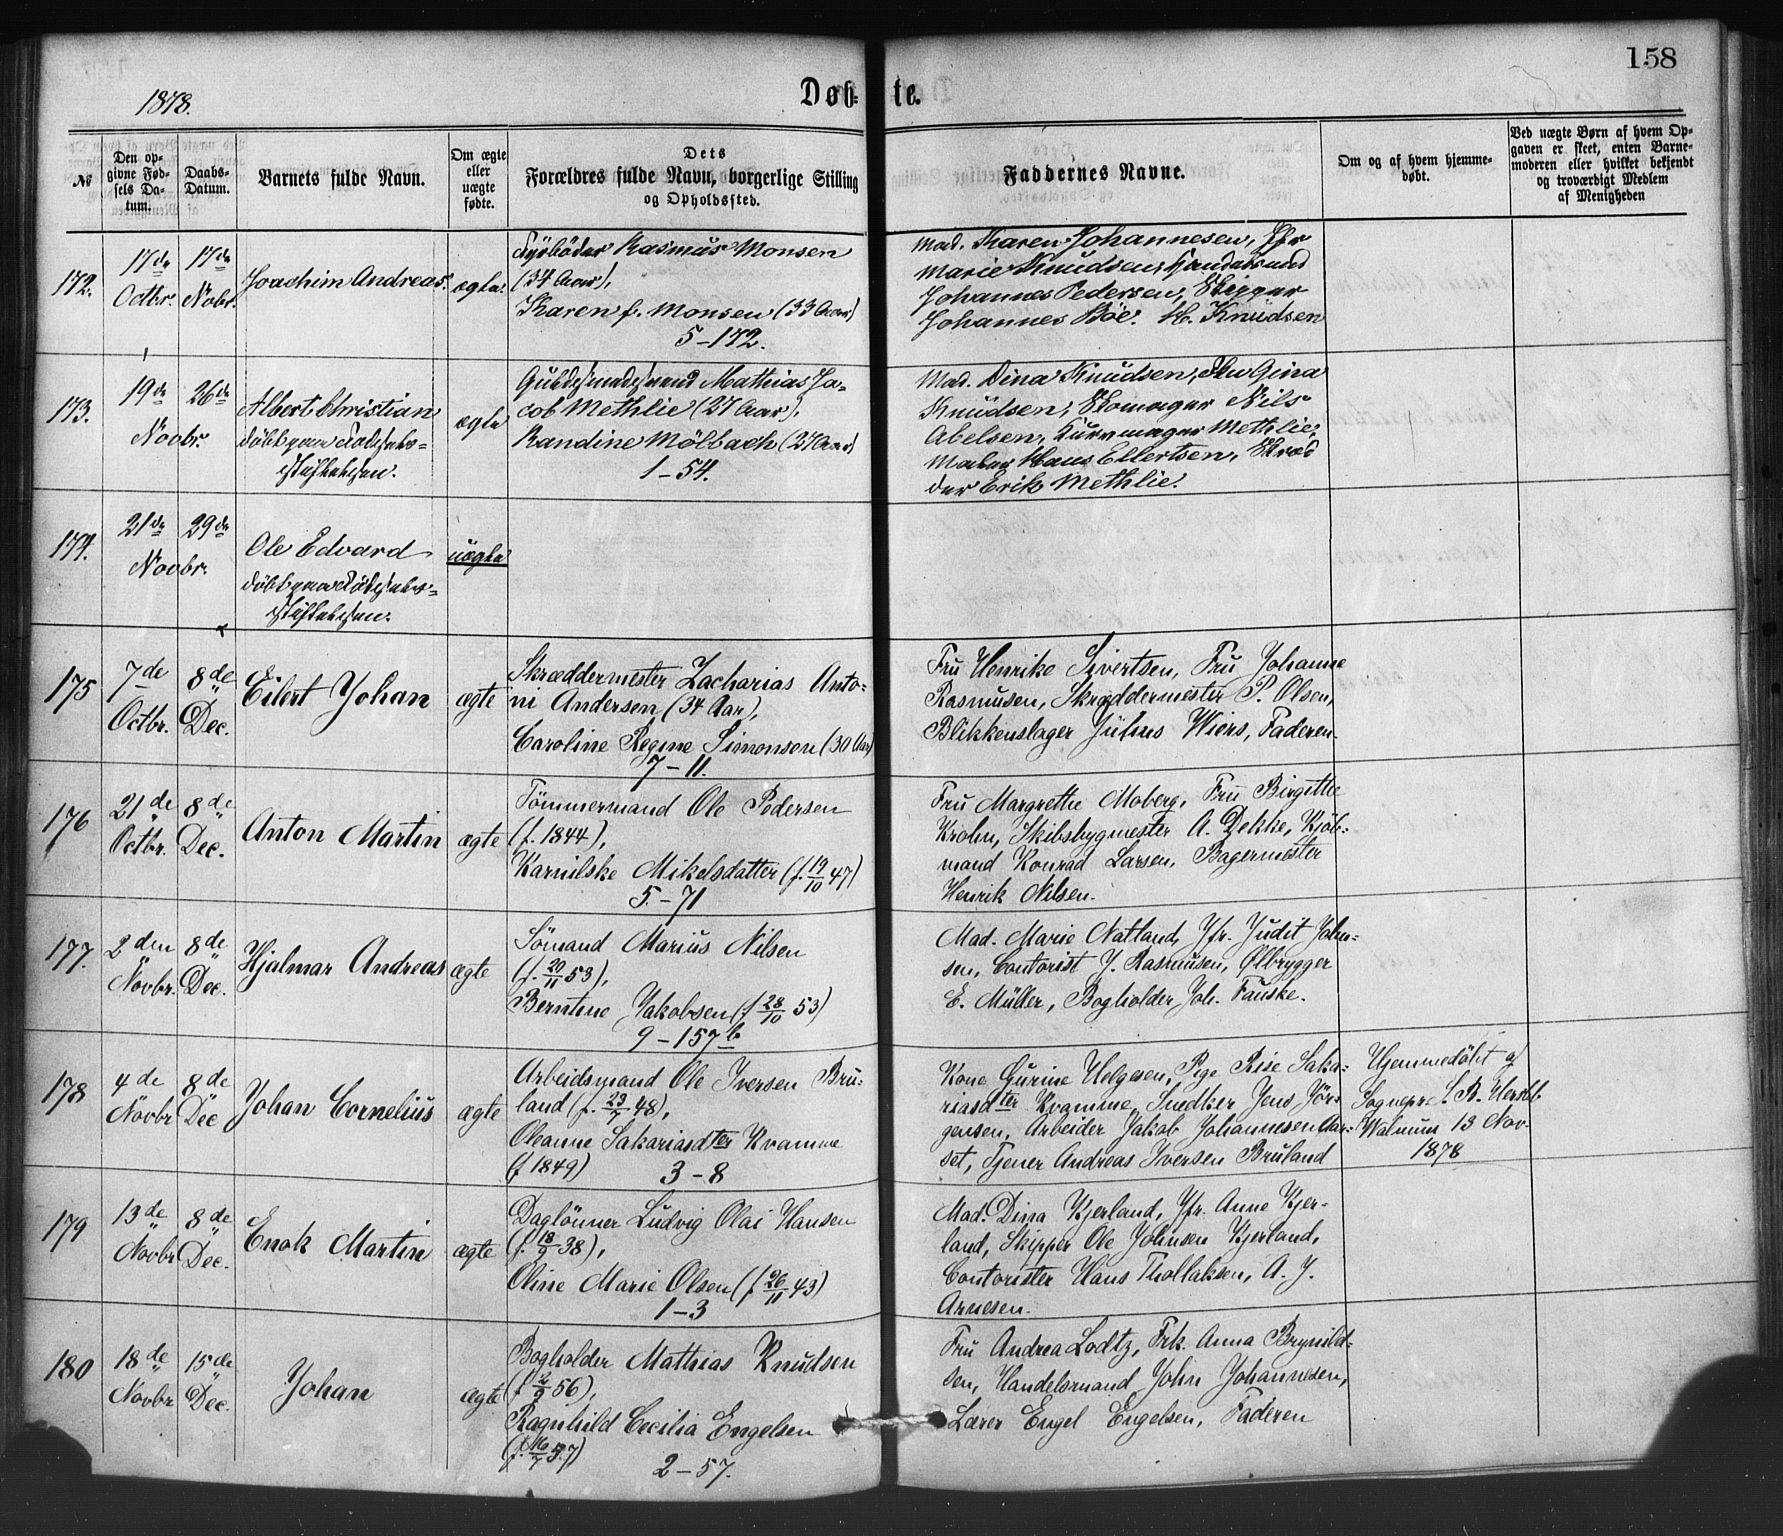 158
1878.
Døb-te.
№
Den op-
givne Fød-
sels Da-
tum.
Daabs-
Datum.
Barnets fulde Navn.
Om ægte
eller
uægte
fødte.
Dets
Forældres fulde Navn, borgerlige Stilling
og Opholdssted.
Faddernes Navne.
Om og af hvem hjemme-
døbt.
Ved uægte Børn af hvem Op-
gaven er skeet, enten Barne-
moderen eller hvilket bekjendt
og troværdigt Medlem
af Menigheden
172.
17de
Octbr.
17de
Novbr.
Joachim Andreas.
ægte.
Rasmus Monsen
(34 Aar),
Karen f. Monsen (33 Aar)
5–172.
Mad. Karen Johannesen, Jfr
Marie Knudsen,
Johannes Pedersen, Skipper
Johannes Böe. H. Knudsen
173.
19de 26de
Novbr.
Albert Christian
døbt paa Fødsels-
stiftelsen.
ægte
Guldsmedsvend Mathias Ja-
cob Methlie (27 Aar),
Randine Mölbach (27 Aar)
1–54.
Mad. Dina Knudsen, Gina
Knudsen, Skomager Nils
Abelsen, Kurvmager Methlie,
Maler Hans Ellertsen, Skræd
der Erik Methlie.
174.
21de 29de
Novbr.
Ole Edvard
døbt paa Fødsels-
stiftelsen.
uægte
175
7de
Octbr.
8de
Dec.
Eilert Johan
ægte
Skræddermester Zacharias Anto-
ni Andersen (34 Aar),
Caroline Regine Simonsen (30 Aar)
7–11.
Fru Henrike Sivertsen, Fru Johanne
Rasmusen, Skræddermester P. Olsen,
Blikkenslager Julius Wiers, Faderen.
176
21de
Octbr.
8de
Dec.
Anton Martin
ægte
Tömmermand Ole Pedersen
(f. 1844),
Karnilske Mikelsdatter (f. 19/10 47)
5–71
Fru Margrethe Moberg, Fru Birgitte
Krohn, Skibsbygmester A. Dekke, Kjöb-
mand Konrad Larsen, Bagermester
Henrik Nilsen.
177.
2den
Novbr.
8de
Dec.
Hjalmar Andreas
ægte
Sömand Marius Nilsen
(f. 20/11 53),
Berntine Jakobsen (f 28/10 53)
9–157b
Mad. Marie Natland, Jfr. Judit John-
sen, Contorist J. Rasmusen, Ølbrygger
E. Müller, Bogholder Joh. Fauske.
178
4de
Novbr
8de
Dec
Johan Cornelius
ægte
Arbeidsmand Ole Iversen Bru-
land (f. 23/7 48),
Oleanne Sakariasdter Kvamme
(f 1849) 3–8
Kone Gurine Helgesen, Pige Rise Saka-
riasdter Kvamme, Snedker Jens Jör-
gensen, Arbeider Jakob Johannesen Aar-
set, Tjener Andreas Iversen Bruland
Hjemmedöbt af
Sognepr.
Walnum 13 Nov.
1878
179
13de
Novbr
8de
Dec.
Enok Martin
ægte
Daglönner Ludvig Olai Hansen
(f. 18/9 38),
Oline Marie Olsen (f 26/11 43)
1–3
Mad. Dina Kjerland, Jfr. Anne Kjer-
land, Skipper Ole Johnsen Kjerland,
Contorister Hans Thollaksen, A. J.
Arnesen.
180
18de
Novbr
15de
Dec.
Johan
ægte
Bogholder Mathias Knutsen
(f 2/9 56),
Ragnhild Cecilia Engelsen
(f. 16/7 57)
2–57.
Fru Andrea Lodtz, Frk. Anna Brynild-
sen, Handelsmand John Johannesen,
Lærer Engel Engelsen, Faderen